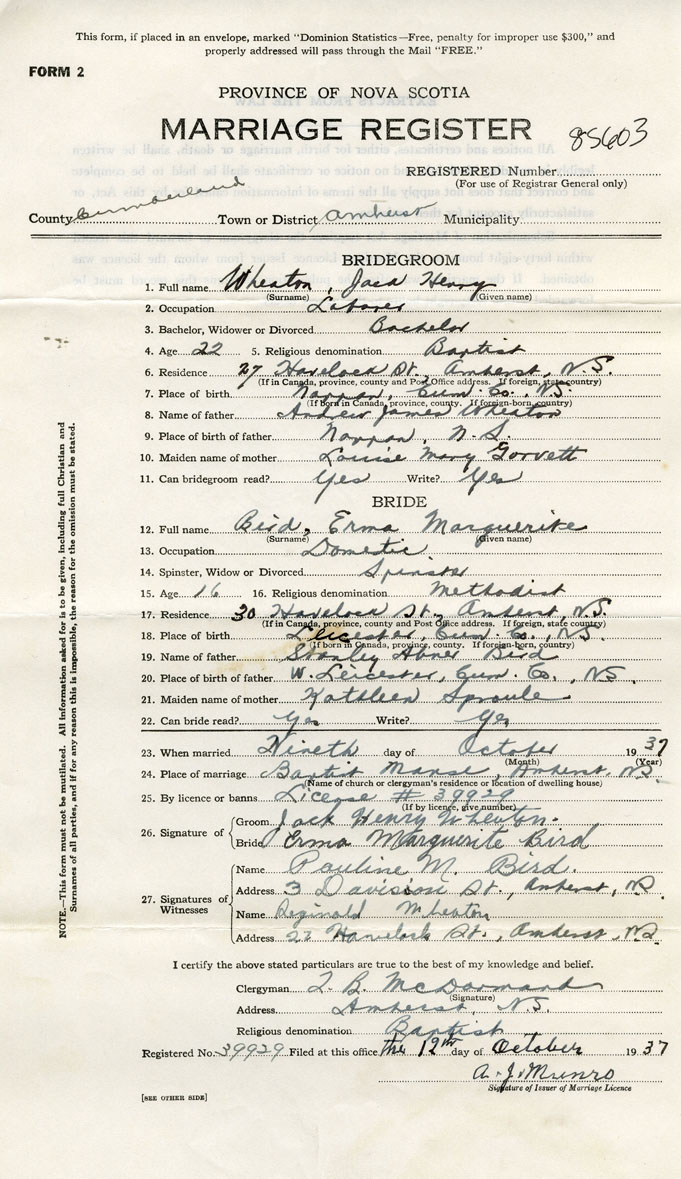 This form, if placed in an envelope, marked "Dominion Statistics—Free, penalty for improper use $300," and
properly addressed will pass through the Mail "FREE."
FORM 2
PROVINCE OF NOVA SCOTIA
MARRIAGE REGISTER 85603
REGISTERED Number
(For use of Registrar General only)
County Cumberland Town or District Amherst Municipality
BRIDEGROOM
1. Full name Wheaton, Jack Henry
(Surname) (Given name)
2. Occupation Laborer
3. Bachelor, Widower or Divorced Bachelor
4. Age 22 5. Religious denomination Baptist
6. Residence 27 Havelock St., Amherst, N.S.
(If in Canada, province, county and Post Office address. If foreign, state country)
7. Place of birth Nappan, Cum. Co., N.S.
(If born in Canada, province, county. If foreign-born, country)
8. Name of father Andrew James Wheaton
9. Place of birth of father Nappan, N.S.
10. Maiden name of mother Louise Mary Gorvett
11. Can bridegroom read? Yes Write? Yes
BRIDE
12. Full name Bird, Erma Marguerite
(Surname) (Given name)
13. Occupation Domestic
14. Spinster, Widow or Divorced Spinster
15. Age 16 16. Religious denomination Methodist
17. Residence 30 Havelock St., Amherst, N.S.
(If in Canada, province, county and Post Office address. If foreign, state country)
18. Place of birth Leicester, Cum. Co., N.S.
(If born in Canada, province, county. If foreign-born, country)
19. Name of father Stanley Abner Bird
20. Place of birth of father W. Leicester, Cum. Co., N.S.
21. Maiden name of mother Kathleen Sproule
22. Can bride read? Yes Write? Yes
23. When married Nineth day of October 1937
(Month) (Year)
24. Place of marriage Baptist Manse, Amherst, N.S.
(Name of church or clergyman's residence or location of dwelling house)
25. By licence or banns License # 39929
(If by licence, give number)
26. Signature of
Groom Jack Henry Wheaton.
Bride Erma Marguerite Bird
27. Signatures of Witnesses
Name Pauline M. Bird.
Address 3 Davision St., Amherst, N.S.
Name Reginald Wheaton
Address 27 Havelock St., Amherst, N.S.
I certify the above stated particulars are true to the best of my knowledge and belief.
Clergyman B. McDormand
(Signature)
Address Amherst, N.S.
Religious denomination Baptist
Registered No. 39929 Filed at this office the 12th day of October 1937
A. J. Munro
Signature of Issuer of Marriage Licence
[SEE OTHER SIDE]
NOTE.—This form must not be mutilated. All information asked for is to be given, including full Christian and
Surnames of all parties, and if for any reason this is impossible, the reason for the omission must be stated.